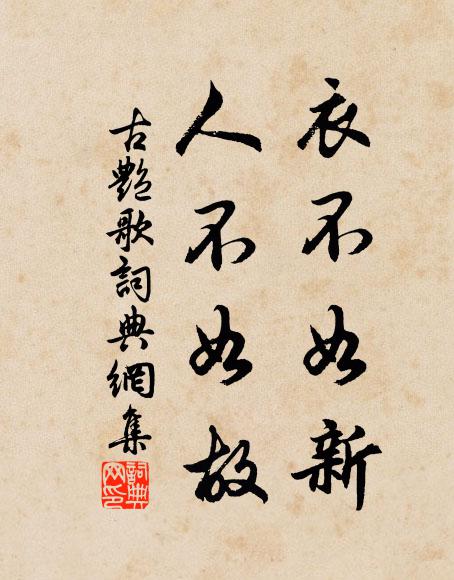 衣不如新
人不如故
古艷歌詞典網集
詞典網印